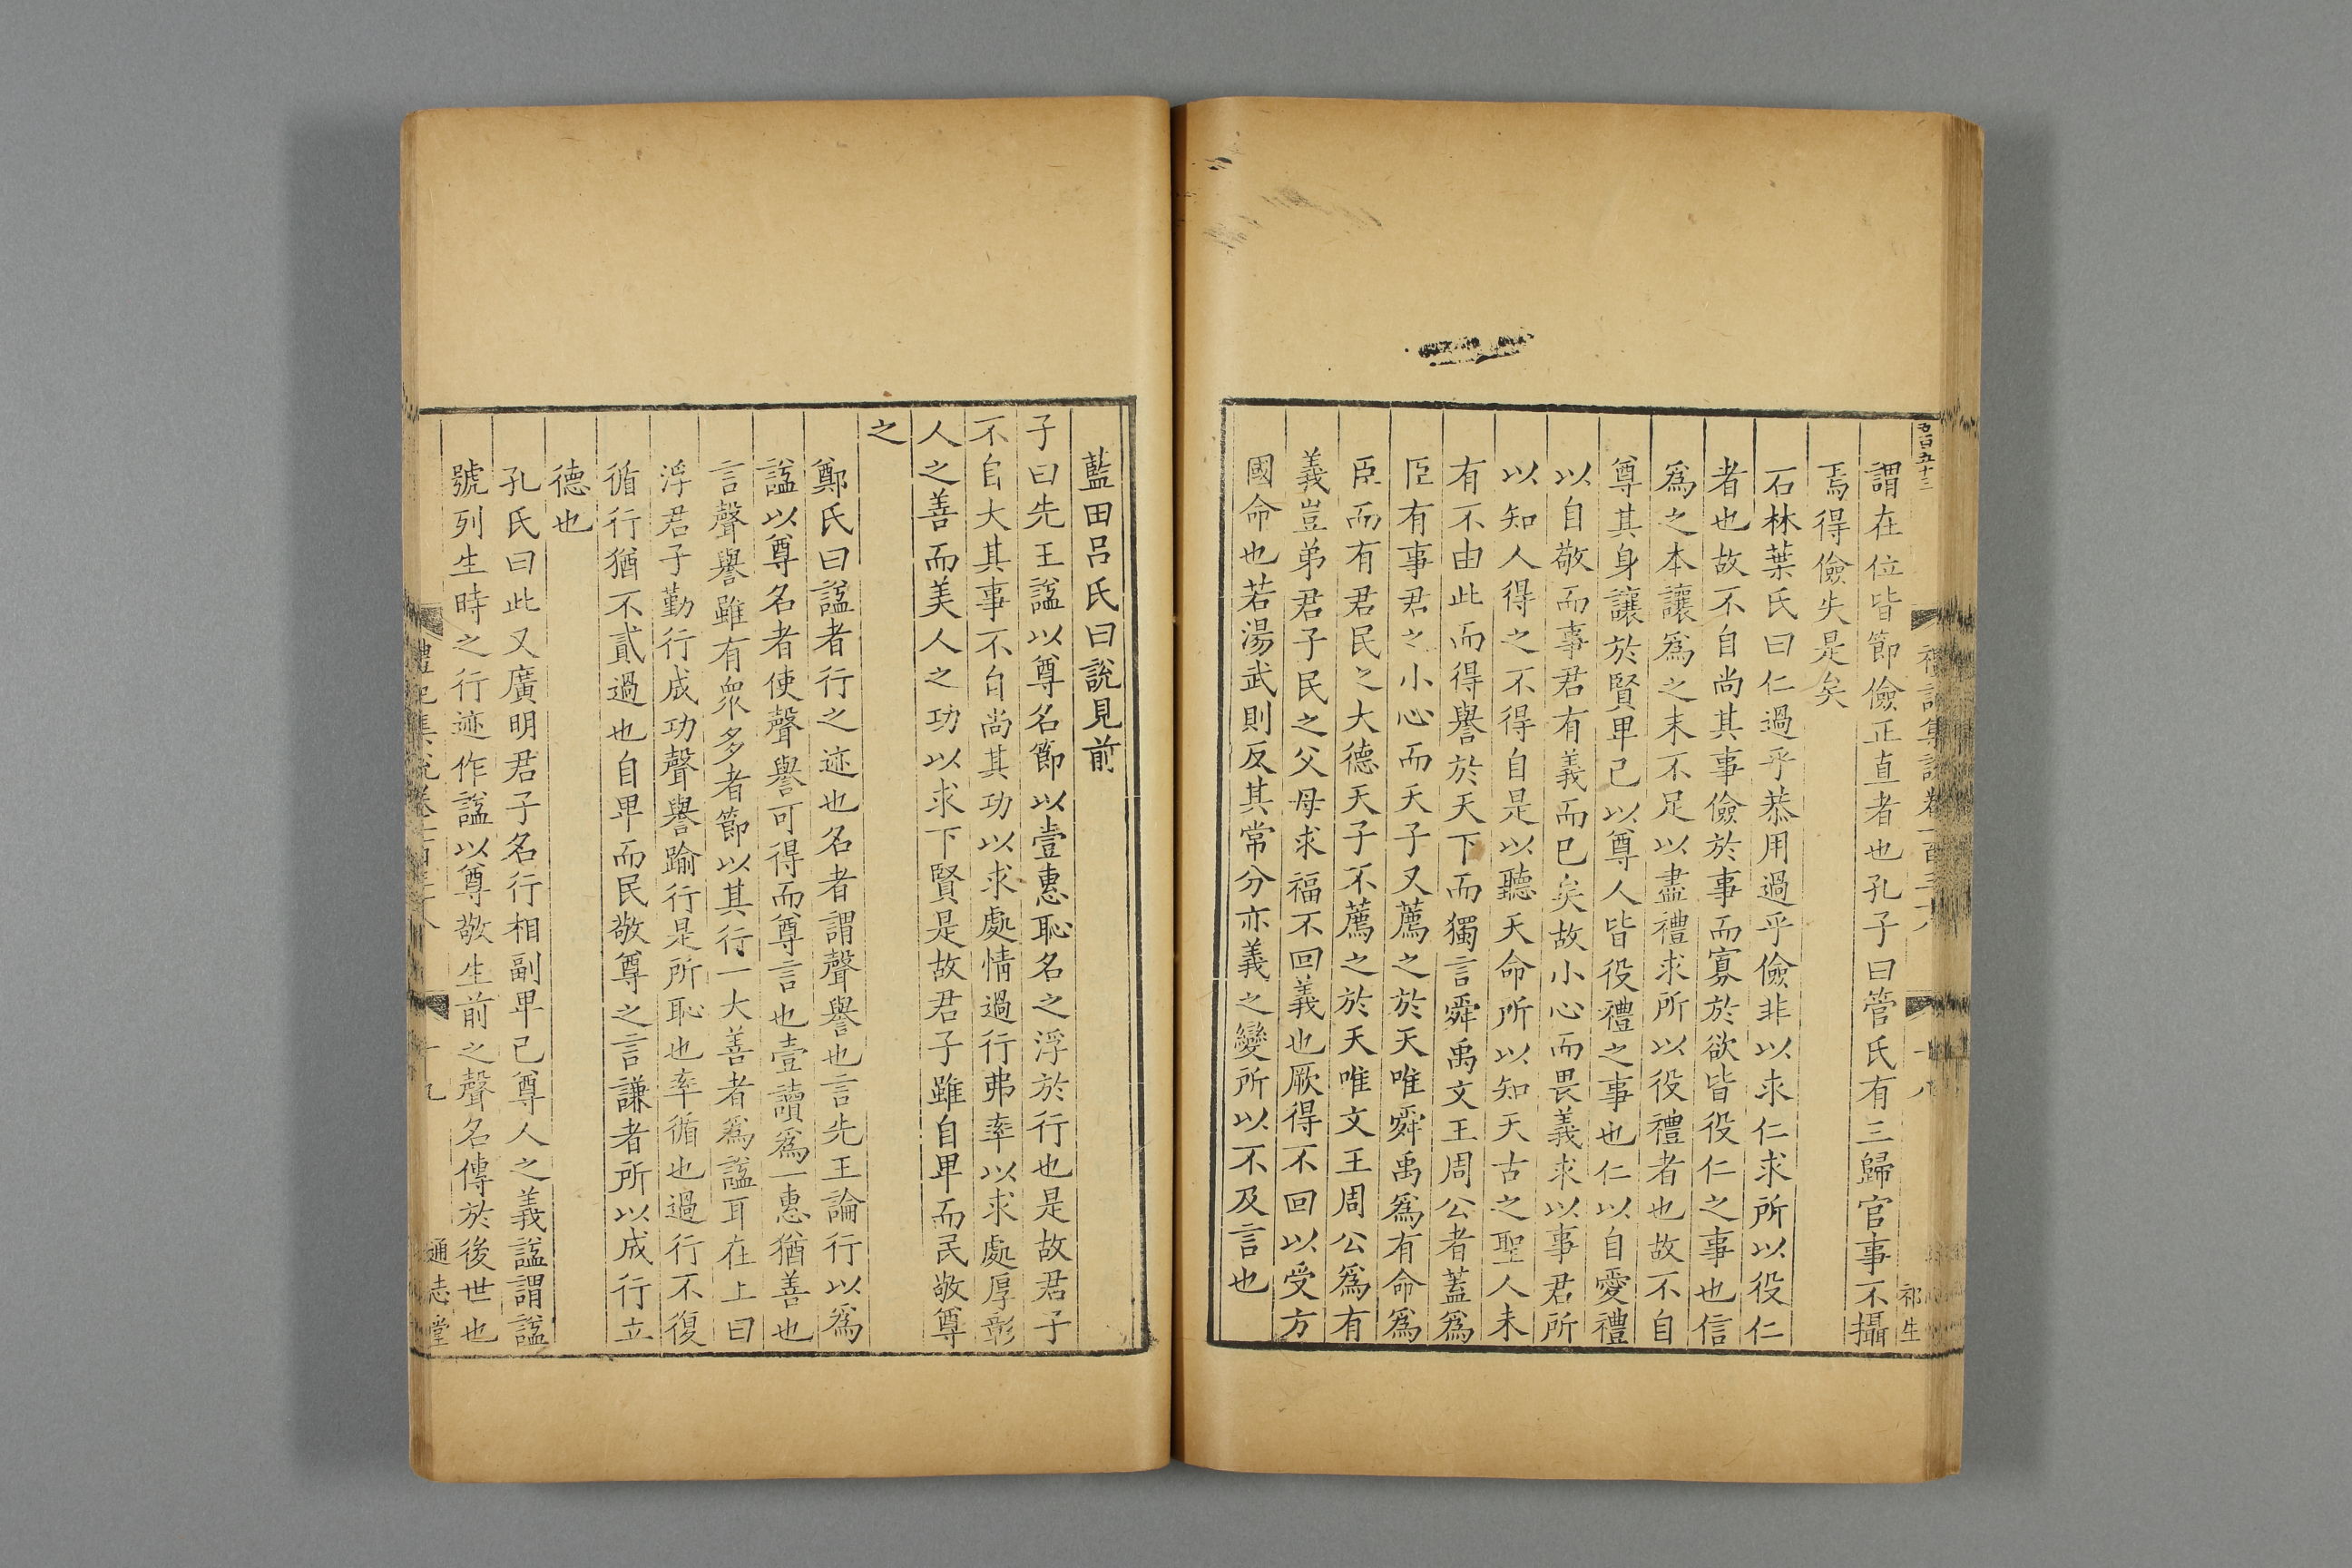 謂在位皆節儉正直者也孔子曰管氏有三歸官事不攝
焉得儉失是矣
石林葉氏曰仁過乎恭用過乎儉非以求仁求所以役仁
者也故不自尚其事儉於事而寡於欲皆役仁之事也信
爲之本讓爲之末不足以盡禮求所以役禮者也故不自
尊其身讓於賢卑己以尊人皆役禮之事也仁以自愛禮
以自敬而事君有義而已矣故小心而畏義求以事君所
以知人得之不得自是以聽天命所以知天古之聖人未
有不由此而得譽於天下而獨言舜禹文王周公者蓋爲
臣有事君之小心而天子又薦之於天唯舜禹爲有命爲
臣而有君民之大德天子不薦之於天唯文王周公爲有
義豈弟君子民之父母求福不回義也厥得不回以受方
國命也若湯武則反其常分亦義之變所以不及言也
祁生
藍田呂氏曰說見前
子曰先王諡以尊名節以壹惠恥名之浮於行也是故君子
不自大其事不自尚其功以求處情過行弗率以求處厚彰
人之善而美人之功以求下賢是故君子雖自卑而民敬尊
之
鄭氏曰諡者行之迹也名者謂聲譽也言先王論行以爲
諡以尊名者使聲譽可得而尊言也壹讀爲一惠猶善也
言聲譽雖有衆多者節以其行一大善者爲諡耳在上曰
浮君子勤行成功聲譽踰行是所恥也率循也過行不復
循行猶不貳過也自卑而民敬尊之言謙者所以成行立
德也
孔氏曰此又廣明君子名行相副卑己尊人之義諡謂諡
號列生時之行迹作諡以尊敬生前之聲名傳於後世也
通志堂